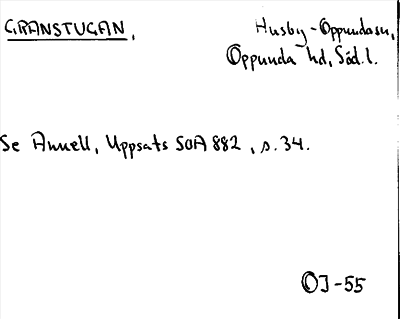 GRANSTUGAN, Husby-Oppundasn,
Oppunda hd, Söd. l.
Se Annell, Uppsats SOA 882, s. 34.
OJ-55